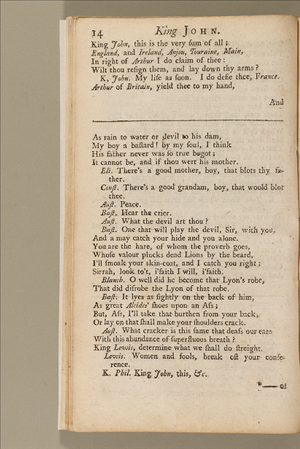 14 King JOHN.
King John, this is the very ſum of all;
England, and Ireland, Anjou, Touraine, Main,
In right of Arthur I do claim of thee:
Wilt thou reſign them, and lay down thy arms?
K. John. My life as ſoon. I do defie thee, France.
Arthur of Britain, yield thee to my hand,
And
As rain to water or devil to his dam,
My boy a baſtard! by my ſoul, I think
His father never was ſo true begot;
It cannot be, and if thou wert his mother.
Eli. There's a good mother, boy, that blots thy fa-
ther.
Conſt. There's a good grandam, boy, that would blot
thee.
Auſt. Peace.
Baſt. Hear the crier.
Auſt. What the devil art thou?
Baſt. One that will play the devil, Sir, with you,
And a may catch your hide and you alone.
You are the hare, of whom the proverb goes,
Whoſe valour plucks dead Lions by the beard,
I'll ſmoak your skin-coat, and I catch you right;
Sirrah, look to't, i'faith I will, i'faith.
Blanch. O well did he become that Lyon's robe,
That did diſrobe the Lyon of that robe.
Baſt. It lyes as ſightly on the back of him,
As great Alcides' ſhoes upon an Aſs;
But, Aſs, I'll take that burthen from your back,
Or lay on that ſhall make your ſhoulders crack.
Auſt. What cracker is this ſame that deafs our ears
With this abundance of ſuperfluous breath?
King Lewis, determine what we ſhall do ſtreight.
Lewis. Women and fools, break off your confe-
rence.
K. Phil. King John, this, &c.
of